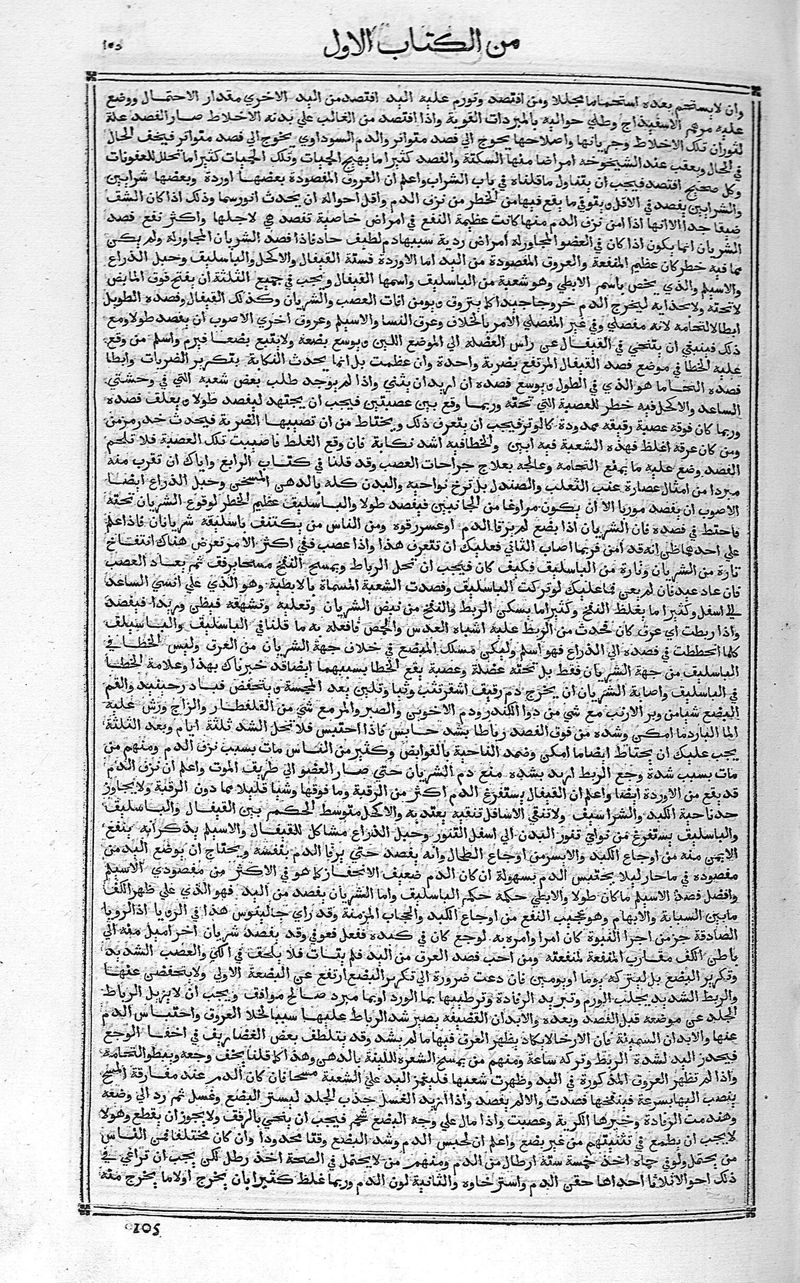 من الكتاب الاول
١٠٥
وان لا يستحم بعده استحماما محللا ومن افتصد وتورم عليه اليد افتصد من اليد الاخري مقدار الاحتمال ووضع
عليه مرهم الاسفيداج وطلي حواليه بالمبردات القوية واذا افتصد من الغالب علي بدنه الاخلاط صار الفصد علة
لثوران تلك الاخلاط وجريانها واصلاحها يحوج الي فصد متواتر والدم السوداوي يحوج الي فصد متواتر فيخف الحال
في الحال ويعقب عند الشيخوخه امراضا منها السكتة والفصد كثيرا ما يهيج الحميات وتلك الحميات كثيرا ما تحلل العفونات
وكل صحيح افتصد فيجب ان يتناول ما قلناه في باب الشراب واعلم ان العروق المفصودة بعضها اوردة وبعضها شرايين
والشرايين يفصد في الاقل ويتوقي ما يقع فيها من الخطر من نزف الدم واقل احواله ان يحدث انورسما وذلك اذا كان الشق
ضيقا جدا الا انها اذا امن نزف الدم منها كانت عظيمة النفع في امراض خاصية تفصد هي لاجلها واكثر نفع فصد
الشريان انما يكون اذا كان في العضو المجاور له امراض ردية سببها دم لطيف حاد فاذا فصد الشريان المجاور له ولم يكن
مما فيه خطر كان عظيم المنفعة والعروق المفصودة من اليد اما الاوردة فستة القيفال والاكحل والباسليق وحبل الذراع
والاسيلم والذي يخص باسم الابطي وهو شعبة من الباسليق واسلمها القيفال ويجب في جميع الثلثة ان يفتح فوق المابض
لا تحته ولا بحذايه ليخرج الدم خروجا جيدا كما ينروق ويومن افات العصب والشريان وكذلك القيفال وفصده الطويل
ابطا لالتحامه لانه مفصلي وفي غير المفصلي الامر بالخلاف وعرق النسا والاسيلم وعروق اخري الاصوب ان يفصد طولا ومع
ذلك فينبغي ان يتنحي في القيفال عن راس العضلة الي الموضع اللين ويوسع بضعة ولا يتبع بضعا فيرم واسلم من وقع
عليه الخطا في موضع فصد القيفال المرتفع بضربة واحدة وان عظمت بل انما يحدث النكاية بتكرير الضربات وابطا
فصده التحاما هو الذي في الطول ويوسع فصده ان اريد ان يثني واذا لم يوجد طلب بعض شعبه التي في وحشي
الساعد والاكحل فيه خطر للعصبة التي تحته وربما وقع بين عصبتين فيجب ان يجتهد ليفصد طولا ويعلف فصده
وربما كان فوقه عصبة رقيقه ممدودة كالوتر فيجب ان يتعرف ذلك ويحتاط من ان تصيبها الضربة فيحدث خدر مزمن
ومن كان عرقه اغلظ فهذه الشعبة فيه ابين والخطا فيه اشد نكاية فان وقع الغلط فاصيبت تلك العصبة فلا تلحم
الفصد وضع عليه ما يمنع التحامه وعالجه بعلاج جراحات العصب وقد قلنا في كتاب الرابع واياك ان تقرب منه
مبردا من امثال عصارة عنب الثعلب والصندل بل ترخ نواحيه والبدن كله بالدهن المسخن وحبل الذراع ايضا
الاصوب ان يفصد موربا الا ان يكون مراوغا من الجانبين فيفصد طولا والباسليق عظيم الخطر لوقوع الشريان تحته
فاحتط في فصده فان الشريان اذا بضع لم يرقا الدم او عسر رقوه ومن الناس من يكتنف باسليقه شريانان فاذا اعلم
علي احدهما ظن انه قد امن فربما اصاب الثاني فعليك ان تتعرف هذا واذا عصب ففي اكثر الامر تعرض هناك انتفاخ
تارة من الشريان وتارة من الباسليق فكيف كان فيجب ان تحل الرباط ويمسح النفخ مسحا برفق ثم يعاد العصب
فان عاد عيد فان لم يغن فما عليك لو تركت الباسليق وفصدت الشعبة المسماة بالابطية وهو الذي علي انسي الساعد
الي اسفل وكثيرا ما يغلط النفخ وكثيرا ما يسكن الربط والنفخ من نبض الشريان وتعليه وتشهقه فيظن وريدا فيفصد
واذا ربطت اي عرق كان فحدث من الربط عليه اشباه العدس والحمص فافعله به ما قلنا في الباسليق والباسليق
كلما انحططت في فصده الي الذراع فهو اسلم وليكن مسلك المبضع في خلاف جهة الشريان من العرق وليس الخطا في
الباسليق من جهة الشريان فقط بل تحته عضلة وعصبة يقع الخطا بسببهما ايضا قد خبرناك بهذا وعلامة الخطا
في الباسليق واصابة الشريان ان يخرج دم رقيق اشقر تثب وثبا وتلين بعد المجسة وينخفض فبادر حينيذ والقم
المبضع شيا من وبر الارنب مع شي من دوا الكندر ودم الاخوين والصبر والمر مع شي من القلقطار والزاج ورش عليه
الما البارد ما امكن وشده من فوق الفصد رباطا بشد حابس فاذا احتبس فلا تحل الشد ثلثة ايام وبعد الثلثة
يجب عليك ان يحتاط ايضا ما امكن وضمد الناحية بالقوابض وكثير من الناس مات بسبب نزف الدم ومنهم من
مات بسبب شدة وجع الربط اريد بشده منع دم الشريان حتي صار العضو الي طريق الموت واعلم ان نزف الدم
قد يقع من الاوردة ايضا واعلم ان القيفال يستفرغ الدم اكثر من الرقبة وما فوقها وشيا قليلا مما دون الرقبة ولا يجاوز
حد ناحية الكبد والشراسيف ولا تنقي الاسافل تنقيه يعتد به والاكحل متوسط الحكم بين القيفال والباسليق
والباسليق يستفرغ من نواحي تنور البدن الي اسفل التنور وحبل الذراع مشاكل للقيفال والاسيلم يذكر انه ينفع
الايمن منه من اوجاع الكبد والايسر من اوجاع الطحال وانه يفصد حتي يرقا الدم بنفسه ويحتاج ان يوضع اليد من
مفصوده في ما حار ليلا يحتبس الدم بسهولة ان كان الدم ضعيف الانحفاز كما هو في الاكثر من مفصودي الاسيلم
وافضل فصد الاسيلم ما كان طولا والابطي حكمه حكم الباسليق واما الشريان يفصد من اليد فهو الذي علي ظهر الكف
ما بين السبابة والابهام وهو عجيب النفع من اوجاع الكبد والحجاب المزمنة وقد راي جالينوس هذا في الرويا اذ الرويا
الصادقة جز من اجزا النبوة كان امرا وامره به لوجع كان في كبده ففعل فعوفي وقد يفصد شريان اخر اميل منه الي
باطن الكف مقارب المنفعة لمنفعته ومن احب فصد العرق من اليد فلم يتات فلا يلحف في الكي والعصب الشديد
وتكرير البضع بل ليتركه يوما او يومين فان دعت ضرورة الي تكرير البضع ارتفع عن البضعة الاولي ولا ينخفض عنها
والربط الشديد يجلب الورم وتبريد الرفادة وترطيبها بما الورد او بما مبرد صالح موافق ويجب ان لا يزيل الرباط
الجلد عن موضعه قبل الفصد وبعده والابدان القضيفة يصير شد الرباط عليها سببا لخلا العروق واحتباس الدم
عنها والابدان السمينة فان الارخا لا يكاد يظهر العرق فيها ما لم يشد وقد يتلطف بعض الفصادين في اخفا الوجع
فيخدر اليد لشدة الربط وتركه ساعة ومنهم من يمسح الشعرة اللينة بالدهن وهذا كما قلنا يخف وجعه ويبطو التحامه
واذا لم تظهر العروق المذكورة في اليد وظهرت شعبها فليغمز اليد علي الشعبة مسحا فان كان الدم عند مفارقة المسح
ينصب اليها بسرعة فينفخها فصدت والا لم يفصد واذا اريد الغسل جذب الجلد ليستر البضع وغسل ثم رد الي وضعه
وهندمت الرفادة وخيرها الكرية وعصبت واذا مال علي وجه البضع شحم فيجب ان ينحي بالرفق ولا يجوز ان يقطع وهولا
لا يجب ان يطمع في تثنيتهم من غير بضع واعلم ان لحبس الدم وشد البضع وقتا محدودا وان كان مختلفا فمن الناس
من يحتمل ولو في حماه اخذ خمسة ستة ارطال من الدم ومنهم من لا يحتمل في الصحة اخذ رطل لكن يجب ان تراعي في
ذلك احوالا ثلاثا احداها حقن الدم واسترخاوه والثانية لون الدم وربما غلط كثيرا بان يخرج اولا ما يخرج منه
105